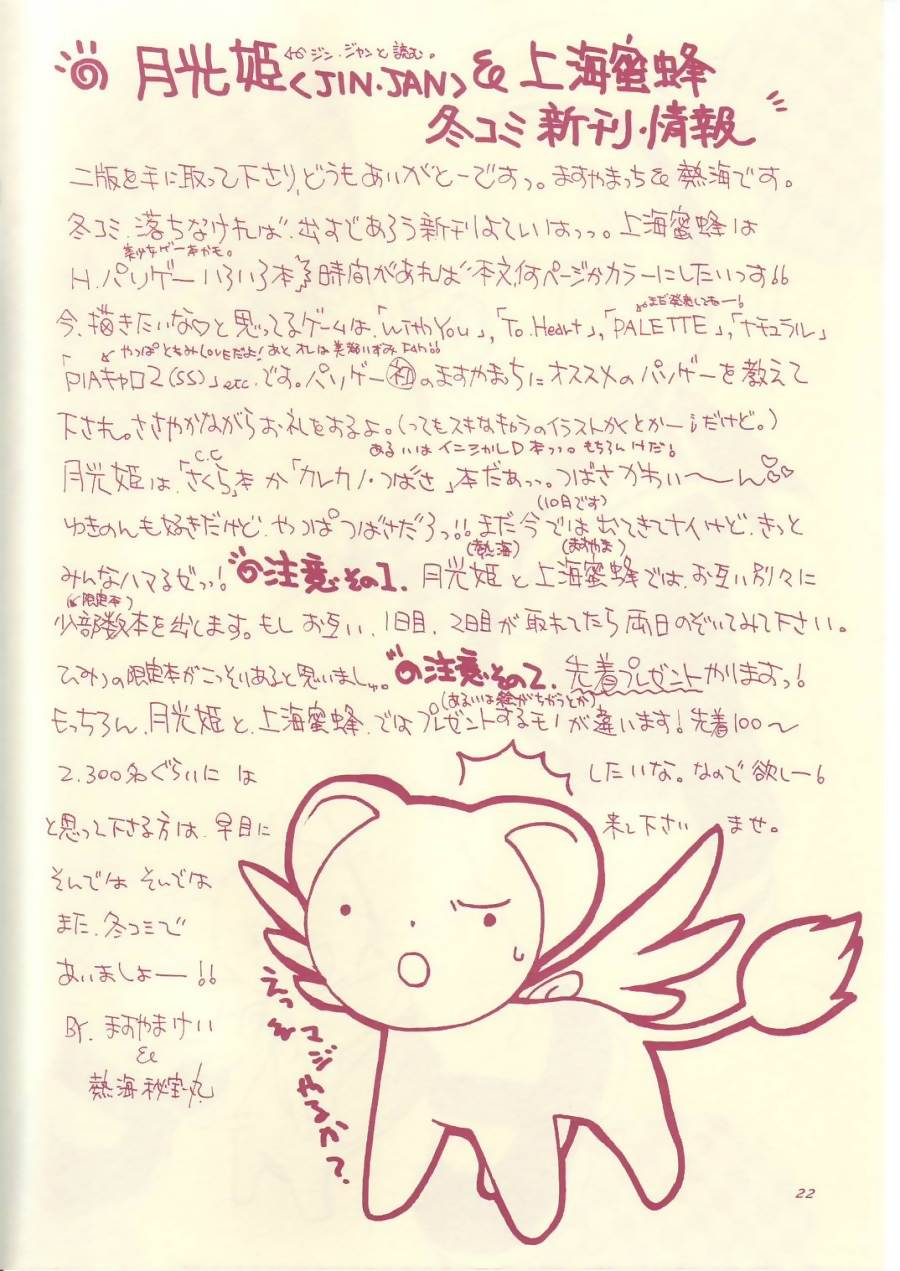 ←ジン・ジャンと読む。
月光姫<JIN.JAN>& 上海蜜蜂
冬コミ 新刊・情報
二版を手に取って下さり、どうもありがとーですっ。ますやまっち&熱海です。
冬コミ、落ちなければ、出すであろう新刊よていはっっ。上海蜜蜂は
美少女ゲー本かも。
H.パソゲーいろいろ本 時間があれば本文何ページかカラーにしたいっす!!
まだ発売してねー!
今、描きたいな♡と思ってるゲームは、「With You」,「To Heart」,「PALETTE」,「ナチュラル」
やっぱともみLOVEだよ!あと オレは美樹いずみ
「PIAキャロ2(SS)」etc.です。パソゲー初のますやまっちにオススメのパソゲーを教えて
下され。ささやかながらお礼をするよ。(ってもスキなキャラのイラストかくとかー!だけど。)
あるいはイニシャルD本っっ。もちろんけだ!
C.C
月光姫は、「さくら」本か「カレカノ・つばさ」本だぁっっ。つばさかわいい〜ん♡♡
(10日です)
ゆきのんも好きだけど、やっぱつばさだろっ!!まだ今では出てきてナイけど、きっと
(熱海) (ますやま)
みんなハマるぜっ!注意その1. 月光姫と上海蜜蜂では、お互い別々に
(限定本)
少部数本を出します。もしお互い、1日目、2日目が取れてたら両日のぞいてみて下さい。
ひみつの限定本がこっそりあると思いましゅ。注意その2. 先着プレゼントがありますっ!
(あるいは絵がちがうとか)
もっちろん、月光姫と、上海蜜蜂、ではプレゼントするモノが違います!先着100〜
2.300名ぐらいには したいな。なので欲しー!
と思って下さる方は、早目に 来て下さい ませ。
そんでは そんでは
また、冬コミで
あいましょーー!!
By. ますやまけい
&
熱海秘宝丸
えっ マジやるか?
22